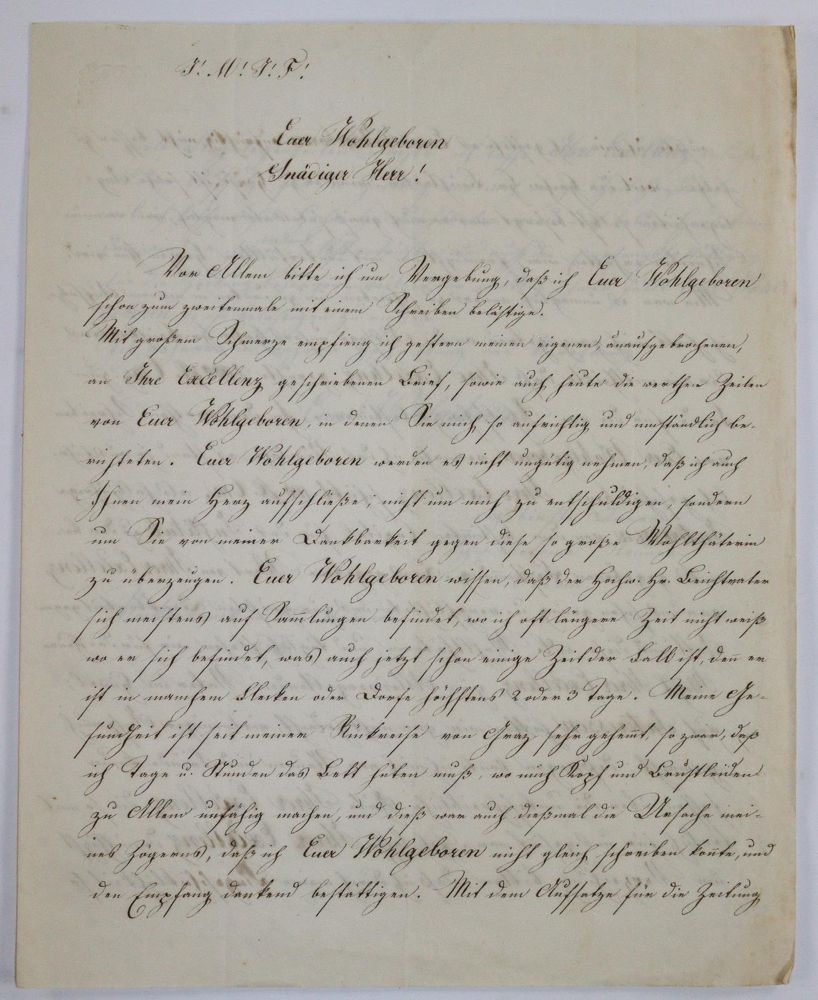 J! M! J! F!
Euer Wohlgeboren
Gnädiger Herr!
Vor Allem bitte ich um Vergebung, daß ich Euer Wohlgeboren
schon zum zweitenmale mit einem Schreiben belästige.
Mit großem Schmerze empfieng ich gestern meinen eigenen, unaufgebrochenen,
an Ihre Excellenz geschriebenen Brief, sowie auch heute die werthen Zeilen
von Euer Wohlgeboren, in denen Sie mich so aufrichtig und umständlich be-
richteten. Euer Wohlgeboren werden es nicht ungütig nehmen, daß ich auch
Ihnen mein Herz aufschließe; nicht um mich zu entschuldigen, sondern
um Sie von meiner Dankbarkeit gegen diese so große Wohlthäterin
zu überzeugen. Euer Wohlgeboren wissen, daß der Hochw. Hr. Beichtvater
sich meistens auf Sammlungen befindet, wo ich oft längere Zeit nicht weiß
wo er sich befindet, was auch jetzt schon einige Zeit der Fall ist, den̄ er
ist in manchem Flecken oder Dorfe höchstens 2 oder 3 Tage. Meine Ge-
sundheit ist seit meiner Rükreise von Graz sehr gehem̄t, so zwar, daß
ich Tage u. Stunden das Bett hüten muß, wo mich Kopf und Brustleiden
zu Allem unfähig machen, und dieß war auch dießmal die Ursache mei-
nes Zögerns, daß ich Euer Wohlgeboren nicht gleich schreiben kon̄te, und
den Empfang dankend bestättigen. Mit dem Aufsatze für die Zeitung